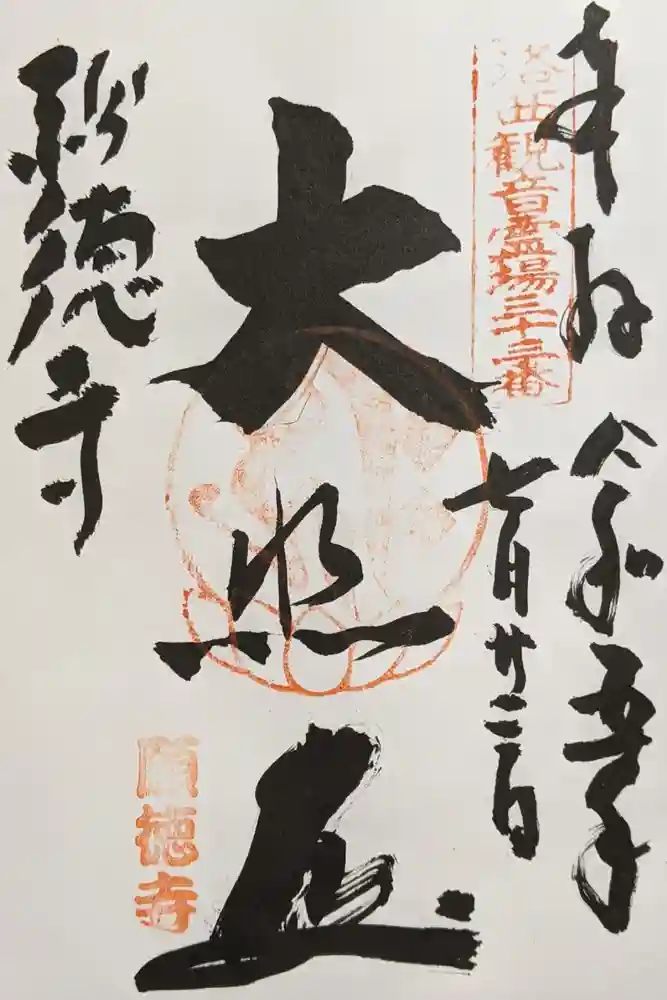 奉拝 令和五年
七月廿二日
洛西観音霊場三十三番
大悲殿
願徳寺
願徳寺